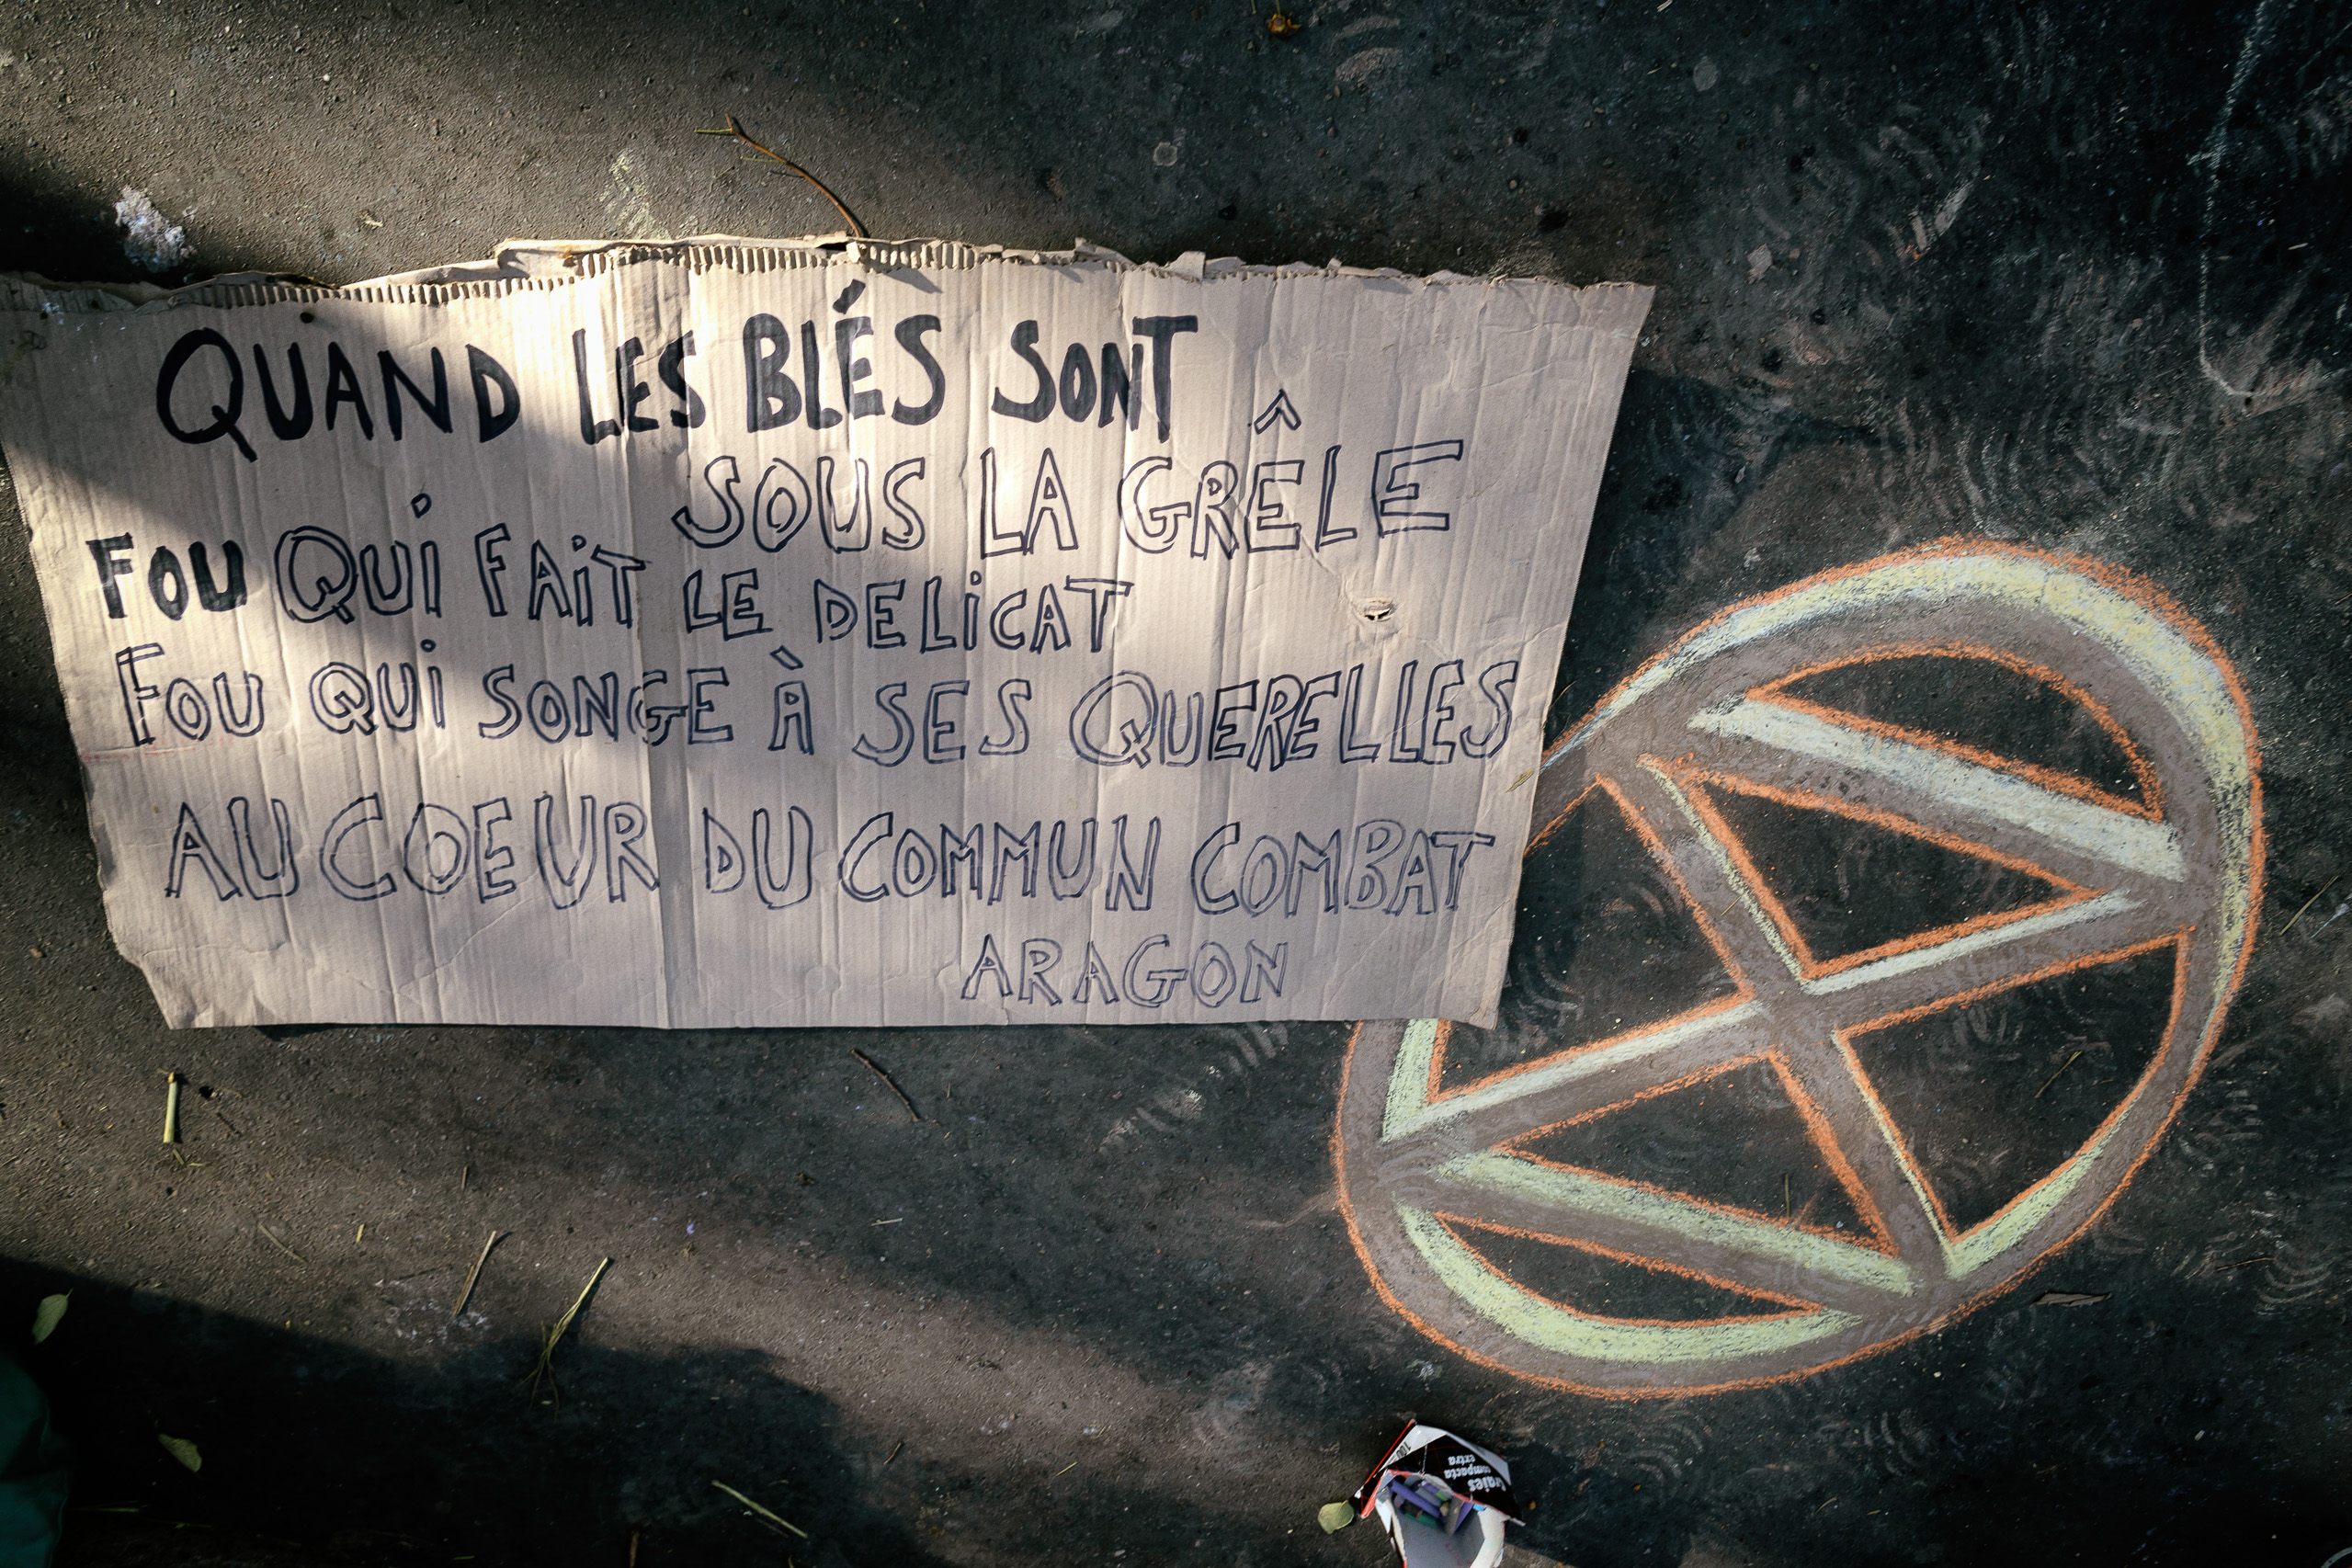 QUAND LES BLÉS SONT
SOUS LA GRÊLE
FOU QUi FAiT LE DELiCAT
FOU QUi SONGE À SES QUERELLES
AU COEUR DU COMMUN COMBAT
ARAGON
100
raies
compacta
extra